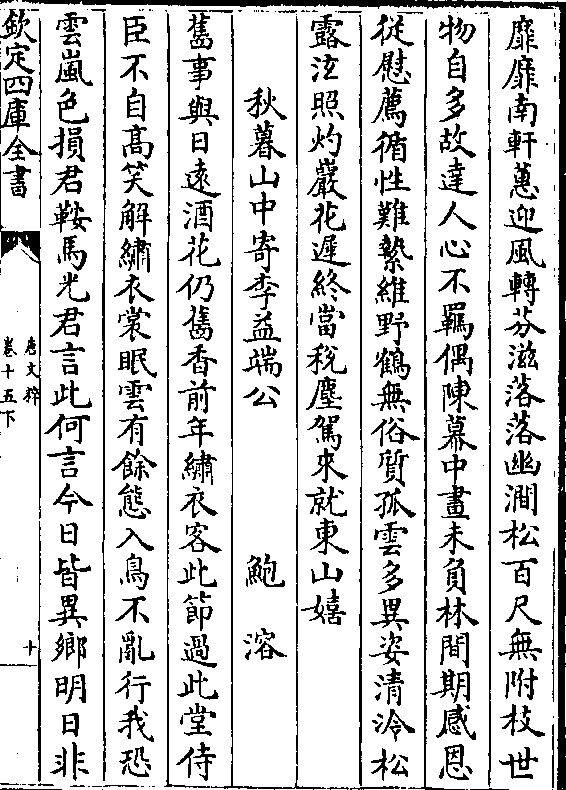 靡靡南軒蕙迎風轉芬滋落落幽澗松百尺無附枝世
物自多故達人心不羈偶陳幕中畫未負林間期感恩
從慰薦循性難縶維野鶴無俗質孤雲多異姿清泠松
露泫照灼巖花遲終當稅塵駕來就東山嬉
秋暮山中寄李益端公　鮑溶
舊事與日遠酒花仍舊香前年繡衣客此節過此堂侍
臣不自髙笑解繡衣裳眠雲有餘態入鳥不亂行我恐
雲嵐色損君鞍馬光君言此何言今日皆異鄉明日非
欽定四庫全書
唐文粹
卷十五下
十